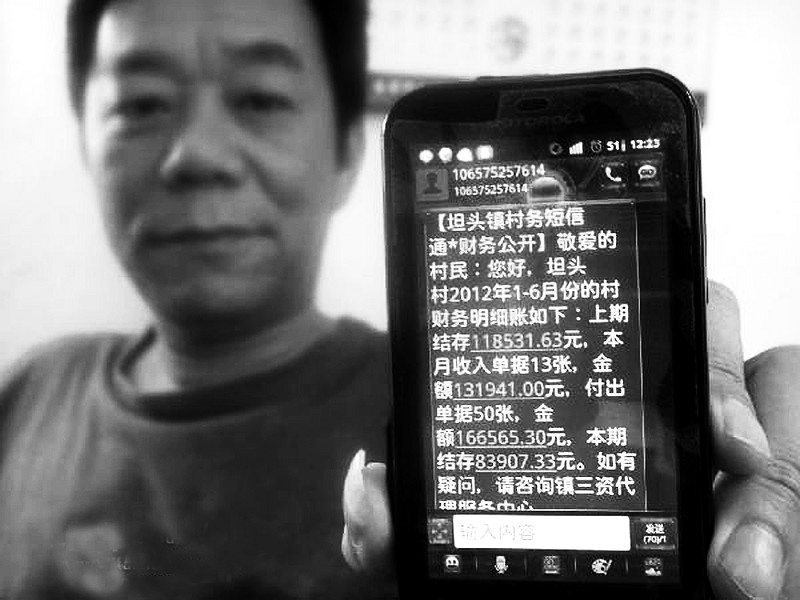 MOTOROLA
51 12:23
106575257614
106575257614
【坦头镇村务短信
通*财务公开】敬爱的
村民：您好，坦头
村2012年1-6月份的村
财务明细账如下：上期
结存118531.63元，本
月收入单据13张，金
额131941.00元，付出
单据50张，金
额166565.30元，本期
结存83907.33元。如有
疑问，请咨询镇三资代
理服务中心
输入内容
发送
(70)/1